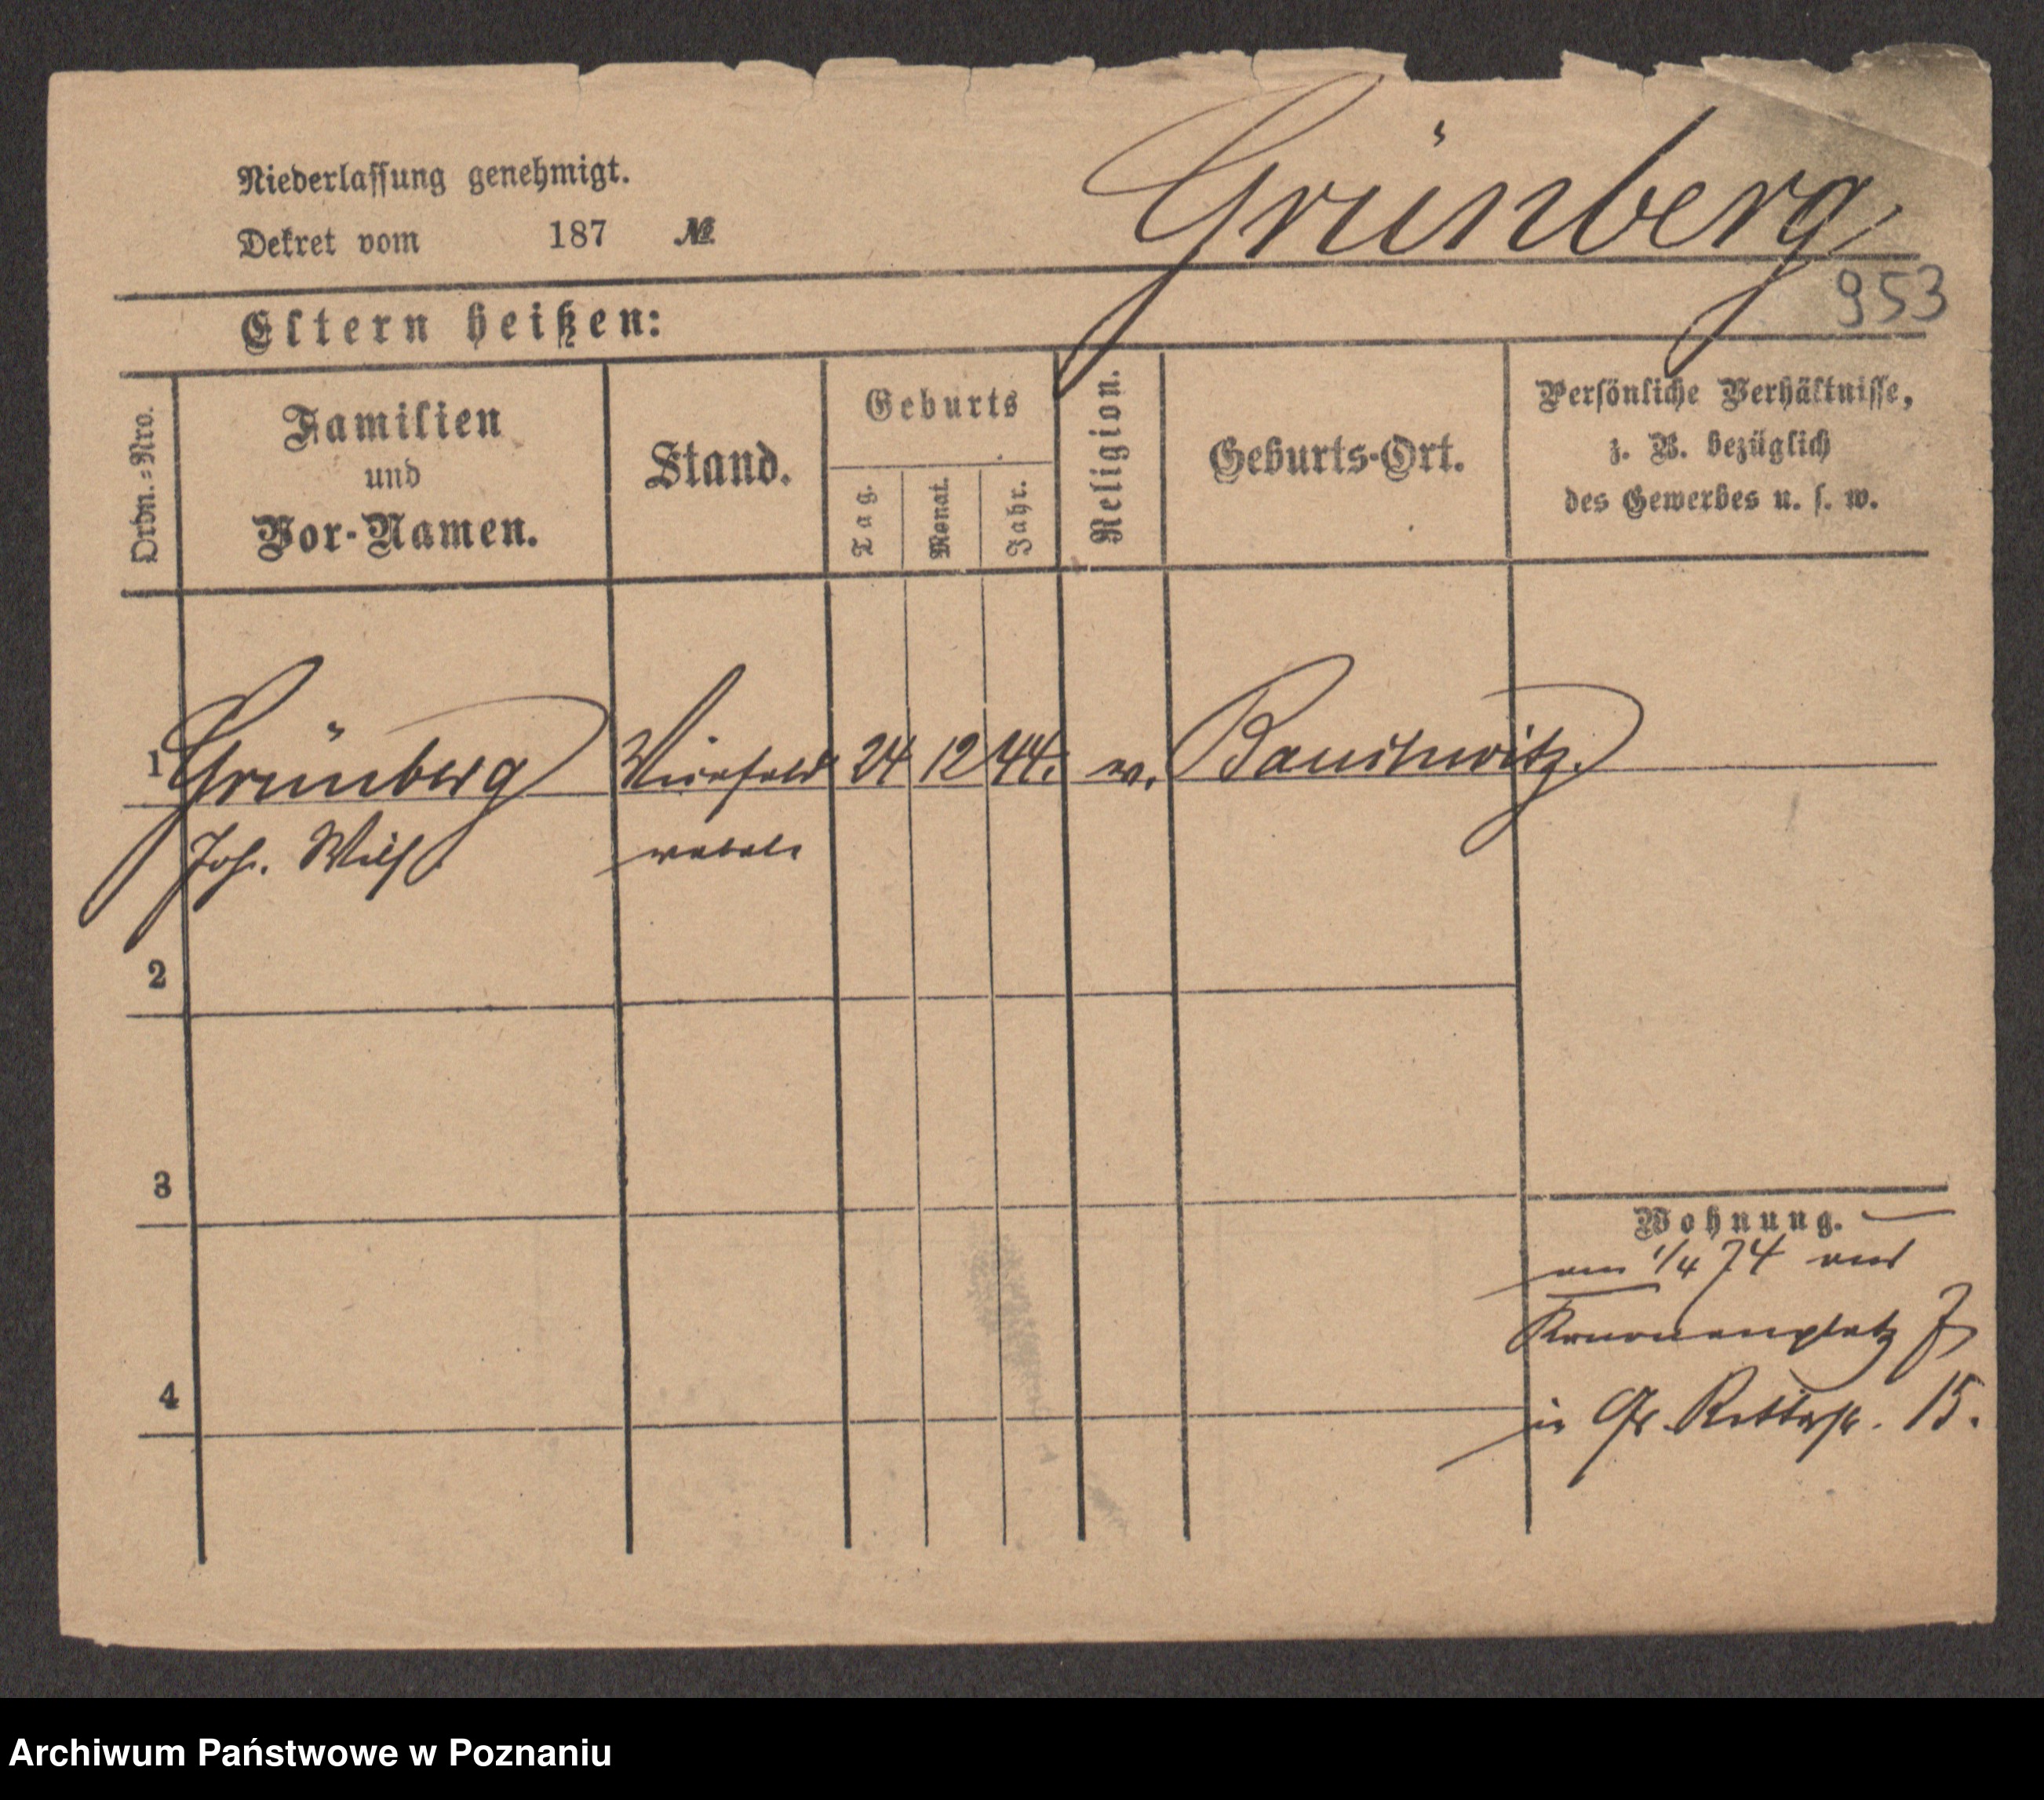 Niederlassung genehmigt.
Dekret vom 187 №
Grünberg
953
Eltern heißen:
Ordn.-Nro.
Familien
und
Vor-Namen.
Stand.
Geburts
Tag.
Monat.
Jahr.
Religion.
Geburts-Ort.
Persönliche Verhältnisse,
z. B. bezüglich
des Gewerbes u. s. w.
1 Grünberg 24 12 44.
Joh. Wilh.
2
3
4
Wohnung.
am 1/4 74 aus
Kanonenplatz 7
in Gr. Ritterstr. 15.
Archiwum Państwowe w Poznaniu